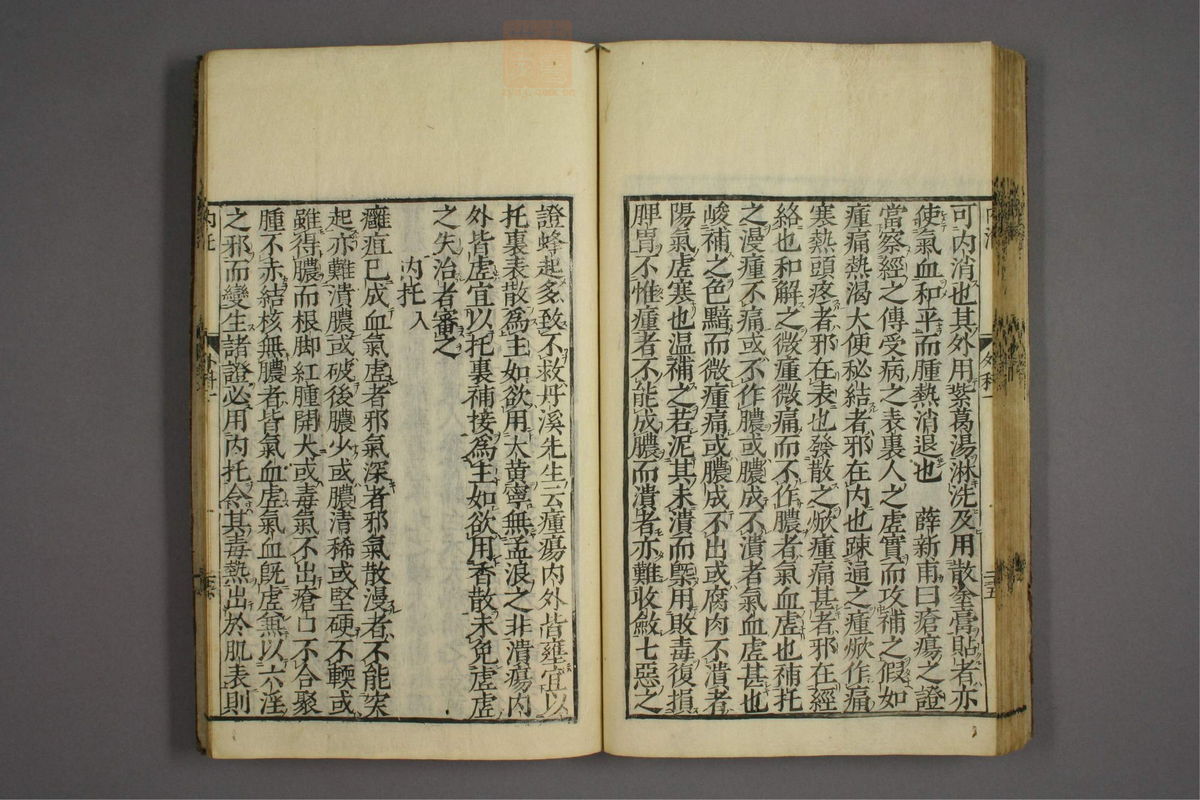 可內消也其外用紫葛湯淋洗及用散奎膏貼者亦
使氣血和平而腫熱消退也 薛新甫曰瘡瘍之證
當察經之傳受病之表裏人之虛實而攻補之假如
瘇痛熱渴大便秘結者邪在內也疎通之瘇焮作痛
寒熱頭疼者邪在表也發散之焮瘇痛甚者邪在經
絡也和解之微瘇微痛而不作膿者氣血虛也補托
之漫瘇不痛或不作膿或膿成不潰者氣血虛甚也
峻補之色黯而微瘇痛或膿成不出或腐肉不潰者
陽氣虛寒也温補之若泥其未潰而槩用敗毒復損
脾胃不惟瘇者不能成膿而潰者亦難收斂七惡之
外科一
二五
證蜂起多致不救丹溪先生云瘇瘍內外皆壅宜以
托裏表散爲主如欲用大黃寧無孟浪之非潰瘍內
外皆虛宜以托裏補接爲主如欲用香散未免虛虛
之失治者審之
內托 八
癰疽已成血氣虛者邪氣深者邪氣散漫者不能突
起亦難潰膿或破後膿少或膿清稀或堅硬不輭或
雖得膿而根脚紅腫開大或毒氣不出瘡口不合聚
腫不赤結核無膿者皆氣血虛氣血旣虛無以六淫
之邪而變生諸證必用內托令其毒熱出於肌表則
內托
外科一